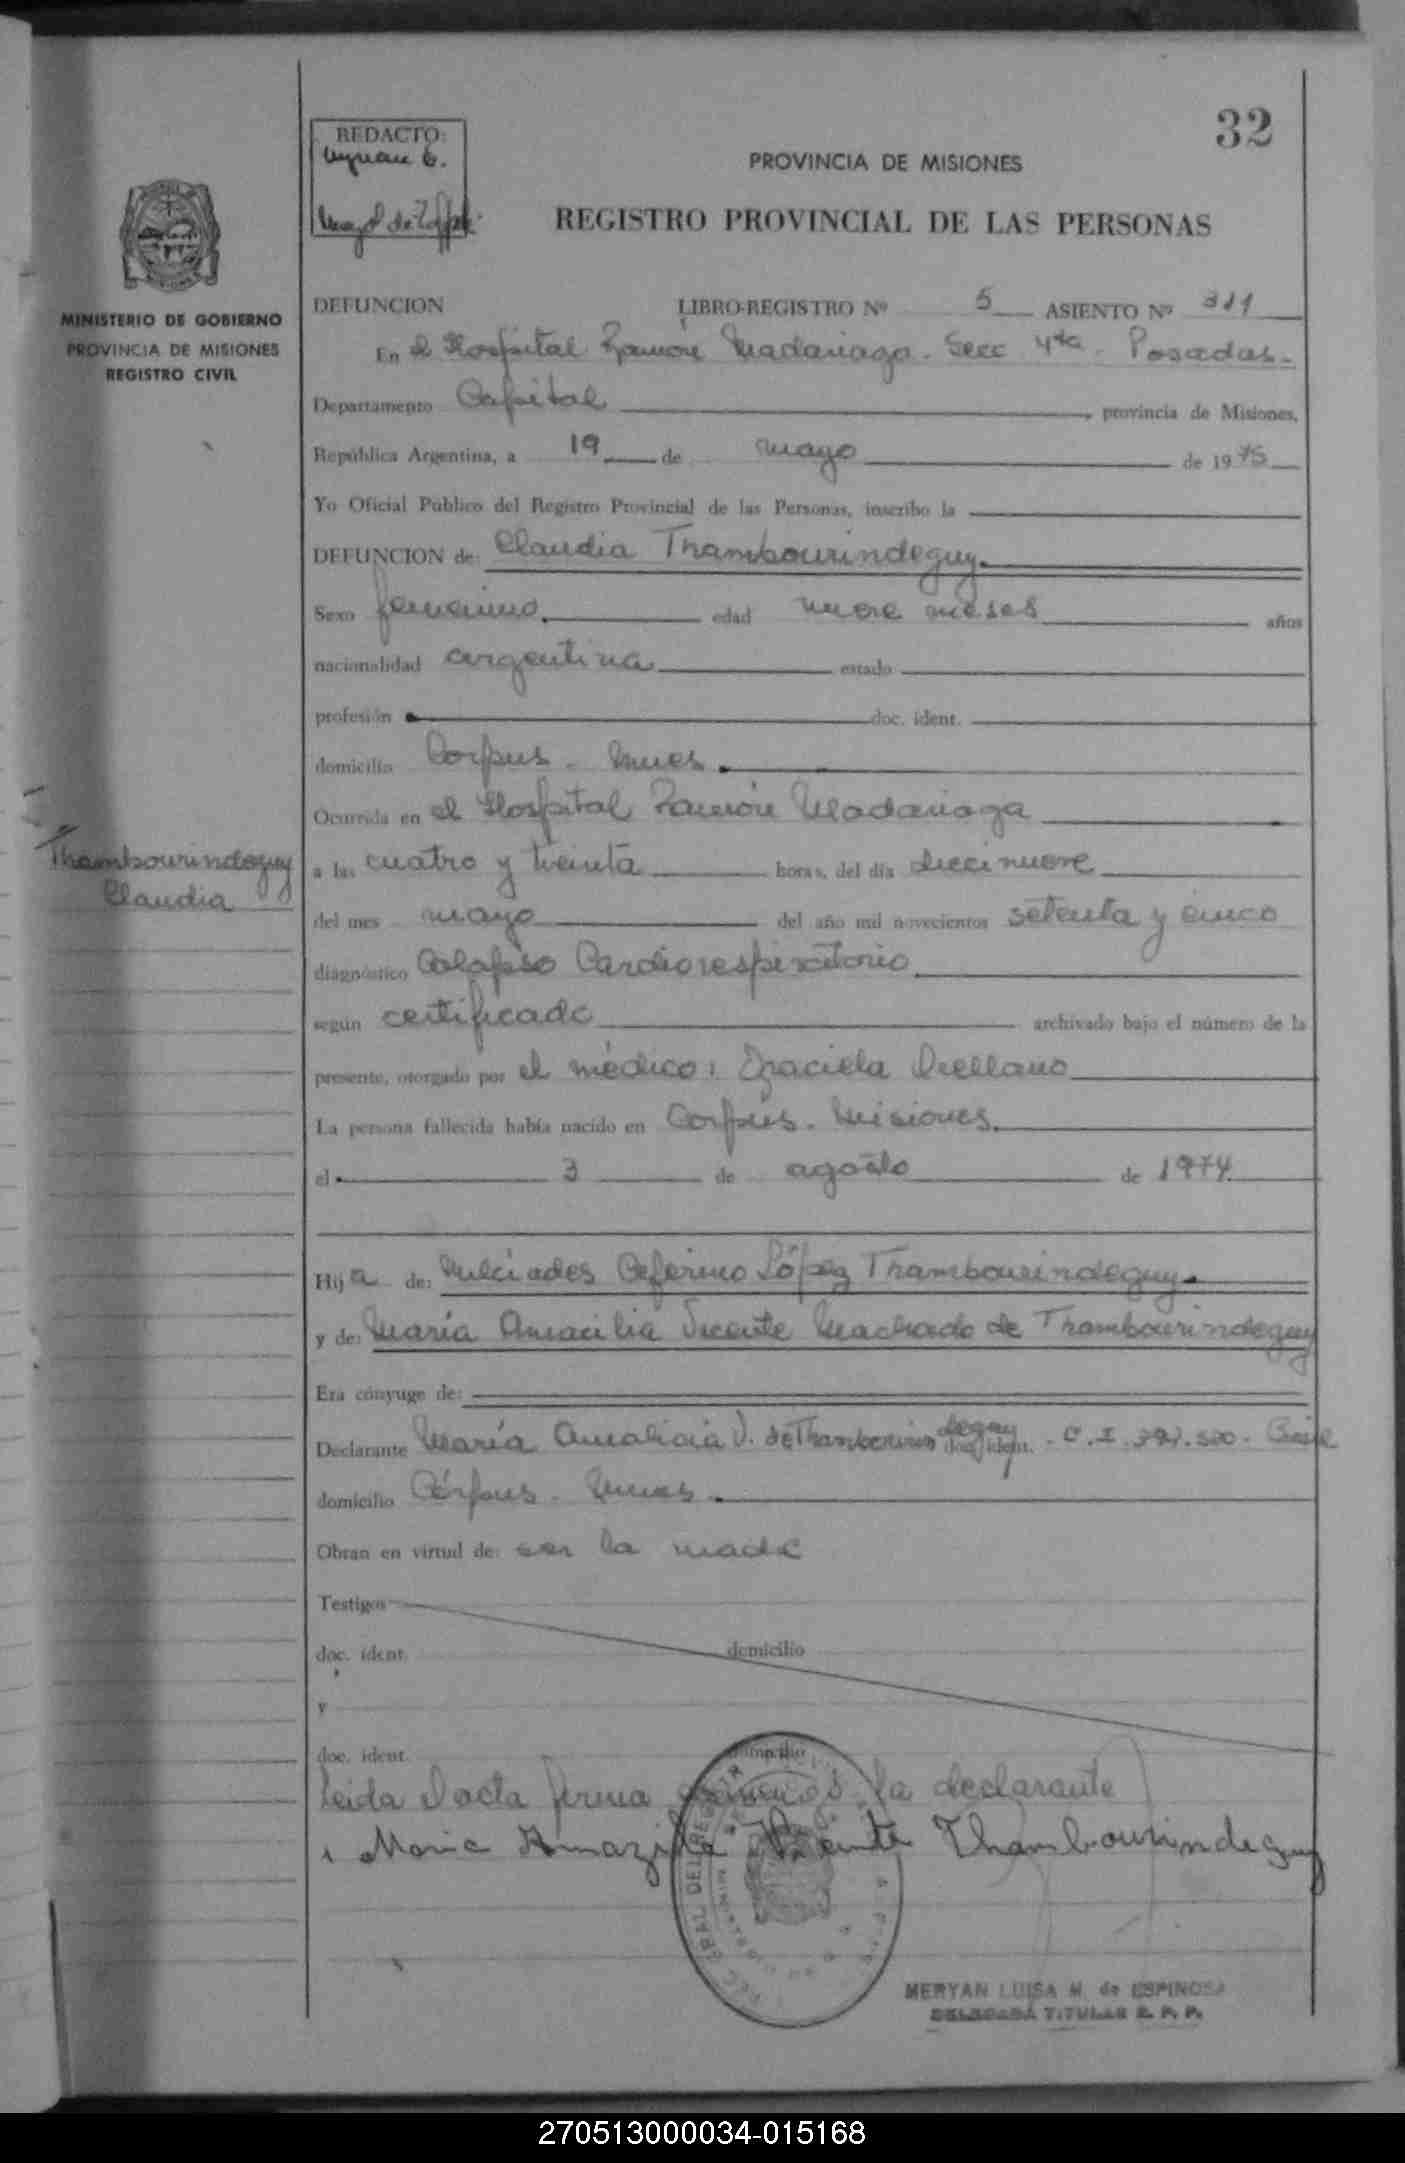 32
REDACTO:
PROVINCIA DE MISIONES
REGISTRO PROVINCIAL DE LAS PERSONAS
MINISTERIO DE GOBIERNO
PROVINCIA DE MISIONES
REGISTRO CIVIL
DEFUNCION LIBRO-REGISTRO Nº 5 ASIENTO Nº 311
En el Hospital Ramón Madariaga - Secc 4ta - Posadas -
Departamento Capital, provincia de Misiones,
República Argentina, a 19 de mayo de 1975
Yo Oficial Público del Registro Provincial de las Personas, inscribo la
DEFUNCION de: Claudia Thambourindeguy.
Sexo femenino. edad nueve meses años
nacionalidad argentina estado
profesión doc. ident.
domicilio Corpus - Mnes.
Ocurrida en el Hospital Ramón Madariaga
Thambourindeguy
Claudia
a las cuatro y treinta horas, del día diecinueve
del mes mayo del año mil novecientos setenta y cinco
diagnóstico Colapso Cardiorespiratorio
según certificado archivado bajo el número de la
presente, otorgado por el médico: Graciela Orellano
La persona fallecida había nacido en Corpus. Misiones.
el 3 de agosto de 1974
Hija de: Milciades Ceferino López Thambourindeguy.
y de: María Amacilia Vicente Machado de Thambourindeguy
Era cónyuge de:
Declarante María Amalicia V. de Thambourindeguy doc. ident. - C.I.
domicilio Córpus - Mnes.
Obran en virtud de: ser la madre
Testigos
doc. ident. domicilio
y
doc. ident. domicilio
Leida el acta firma la declarante
Maria Amazilia Vicente Thambourindeguy
MERYAN LUISA M. de ESPINOSA
DELEGADA TITULAR R. P. P.
270513000034-015168